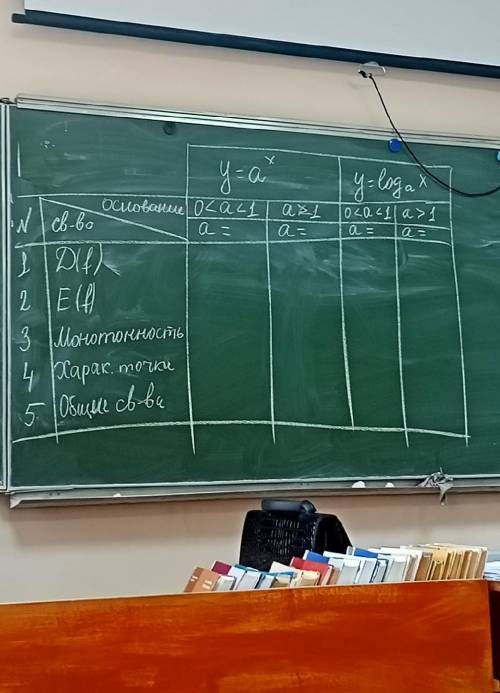 y=aˣ y=logₐx
основание 0<a<1 a>1 0<a<1 a>1
N св-ва a= a= a= a=
1 D(f)
2 E(f)
3 Монотонность
4 Харак. точки
5. Общие св-ва